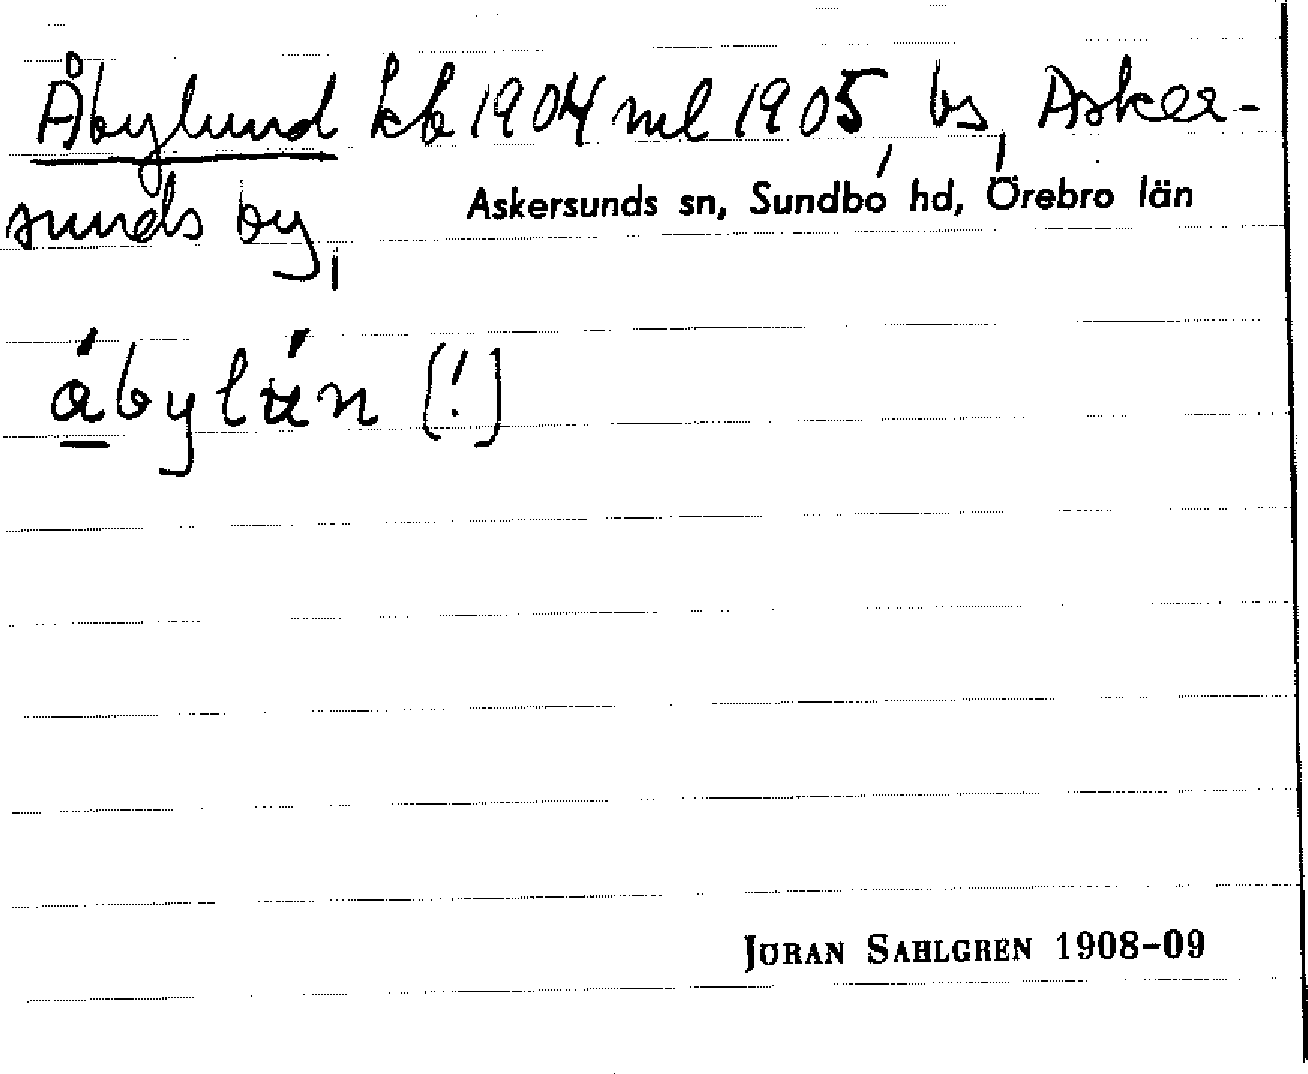 Åbylund kb 1904 ml 1905, bs, Asker-
sunds by,
Askersunds sn, Sundbo hd, Örebro län
åbylún (!)
JÖRAN SAHLGREN 1908-09